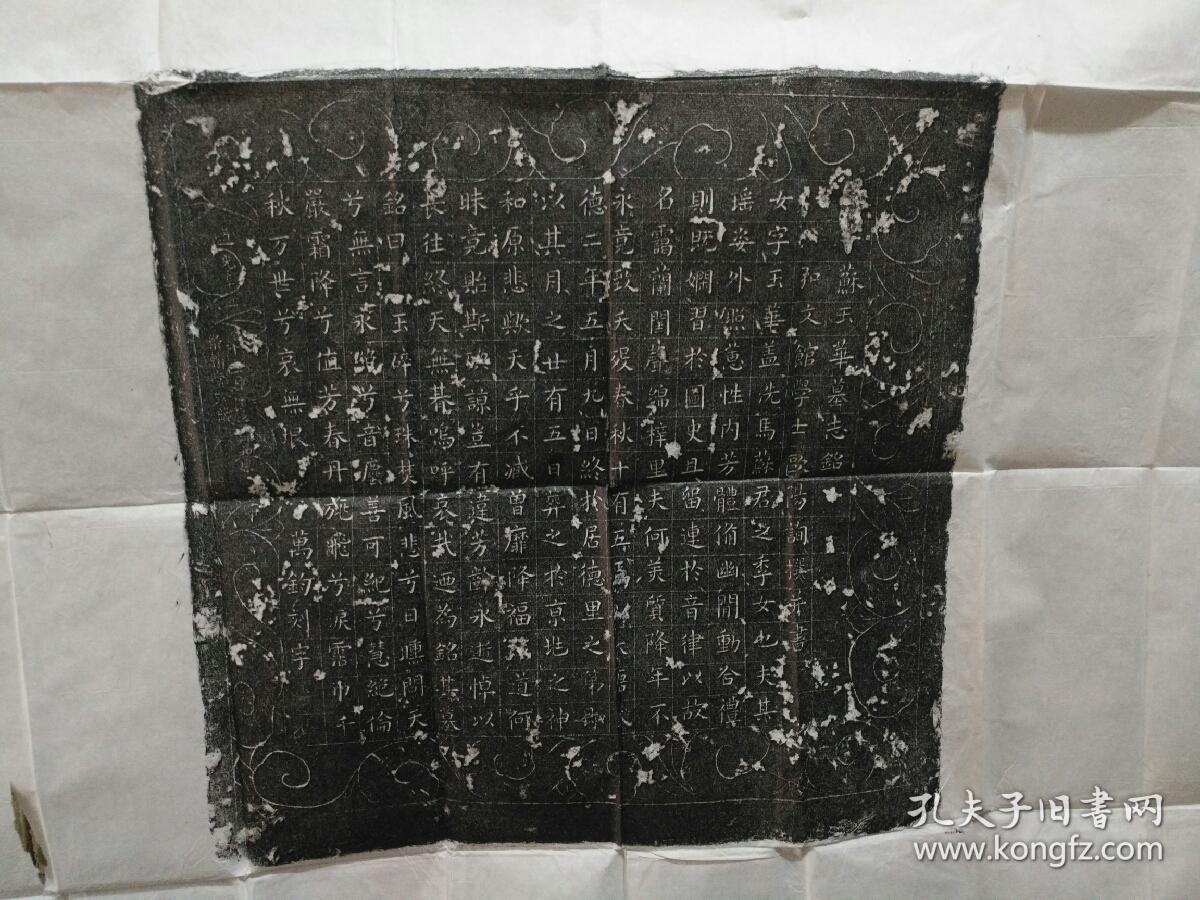 蘇玉華墓志銘
弘文館學士歐陽詢撰并書
女字玉華盖洗馬蘇君之季女也夫其
瑶姿外照蕙性内芳體脩幽閒動合禮
則既嫻習於圖史且留連於音律以故
名靄蘭閨聲綿梓里夫何美質降年不
永竟致夭殁春秋十有五
德二年五月九日終於居德里之第即
以其月之廿有五日葬之於京兆之神
和原悲歟天乎不滅曾靡降福天道何
昧竟貽斯諒豈有違芳齡永逝悼以
長往終天無朞嗚呼哀哉迺為銘其哀
銘曰玉碎兮珠焚風悲兮日曛問天
兮無言永晚兮音塵善可紀兮慧絕倫
嚴霜降兮值芳春丹旐飛兮淚霑巾千
秋万世兮哀無垠
萬鈞刻字
孔夫子旧书网
www.kongfz.com